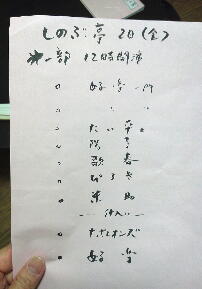 しのぶ亭 2日(金)
第一部 12時開演
○ 好楽一門
○ 〃 〃
○ たい平
○ 陽
○ 歌春
○ ぴろき
○ 米助
--- 仲入 ---
○ ナポレオンズ
○ 好楽